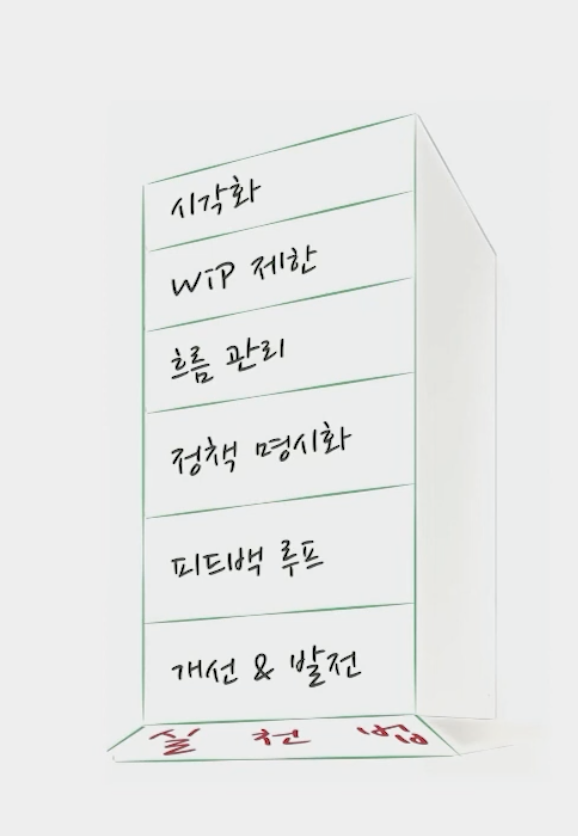 시각화
WiP 제한
흐름 관리
정책 명시화
피드백 루프
개선 & 발전
실천법